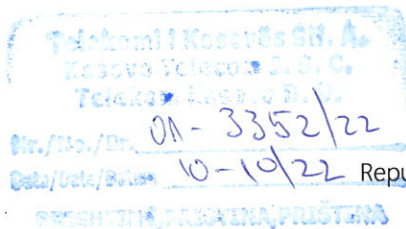 Telekomi i Kosovës SH. A.
Kosovo Telecom J. S. C.
Telekom Kosova D. D.
Nr./No./Br. 01-3352/22
Data/Date/Datum 10-10/22 Repu
PRISHTINË, PRISTINA, PRIŠTINA